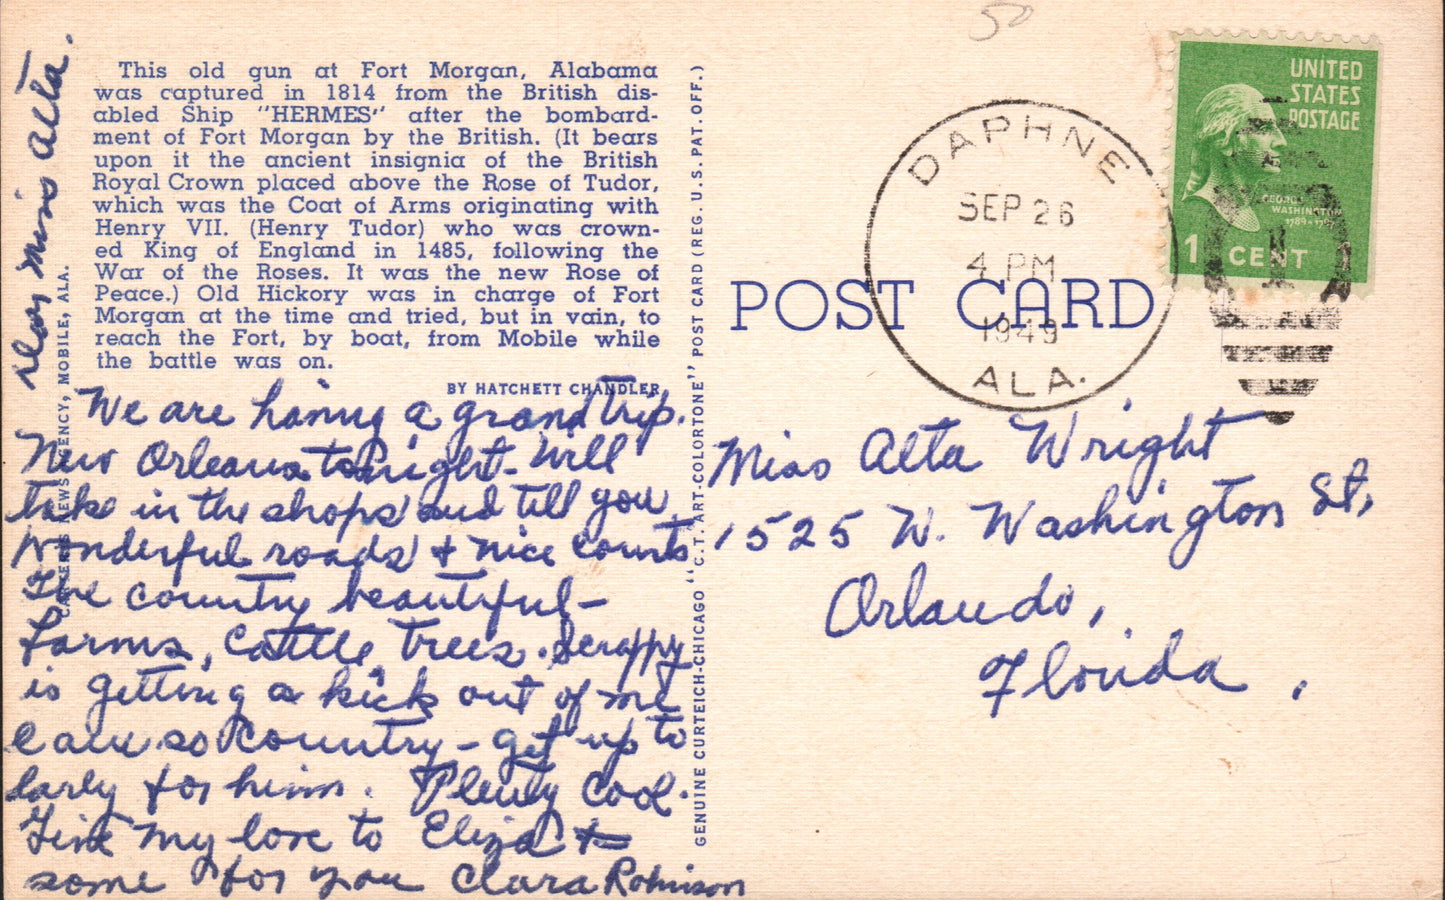 50
This old gun at Fort Morgan, Alabama
was captured in 1814 from the British dis-
abled Ship "HERMES" after the bombard-
ment of Fort Morgan by the British. (It bears
upon it the ancient insignia of the British
Royal Crown placed above the Rose of Tudor,
which was the Coat of Arms originating with
Henry VII. (Henry Tudor) who was crown-
ed King of England in 1485, following the
War of the Roses. It was the new Rose of
Peace.) Old Hickory was in charge of Fort
Morgan at the time and tried, but in vain, to
reach the Fort, by boat, from Mobile while
the battle was on.
BY HATCHETT CHANDLER
Dear Miss Alta.
We are having a grand trip.
New Orleans tonight. Will
take in the shops and tell you
wonderful roads & nice courts
The country beautiful-
Farms, Cattle, Trees. Scrappy
is getting a kick out of me
I am so country - get up to
early for him. Plenty cool.
Give my love to Eliza &
some for you Clara Robinson
NEWS AGENCY, MOBILE, ALA.
GENUINE CURTEICH-CHICAGO "C.T. ART-COLORTONE" POST CARD (REG. U.S. PAT. OFF.)
POST CARD
DAPHNE
SEP 26
4 PM
1949
ALA.
UNITED
STATES
POSTAGE
GEORGE
WASHINGTON
1789-1797
1 CENT
Miss Alta Wright
1525 W. Washington St,
Orlando,
Florida,